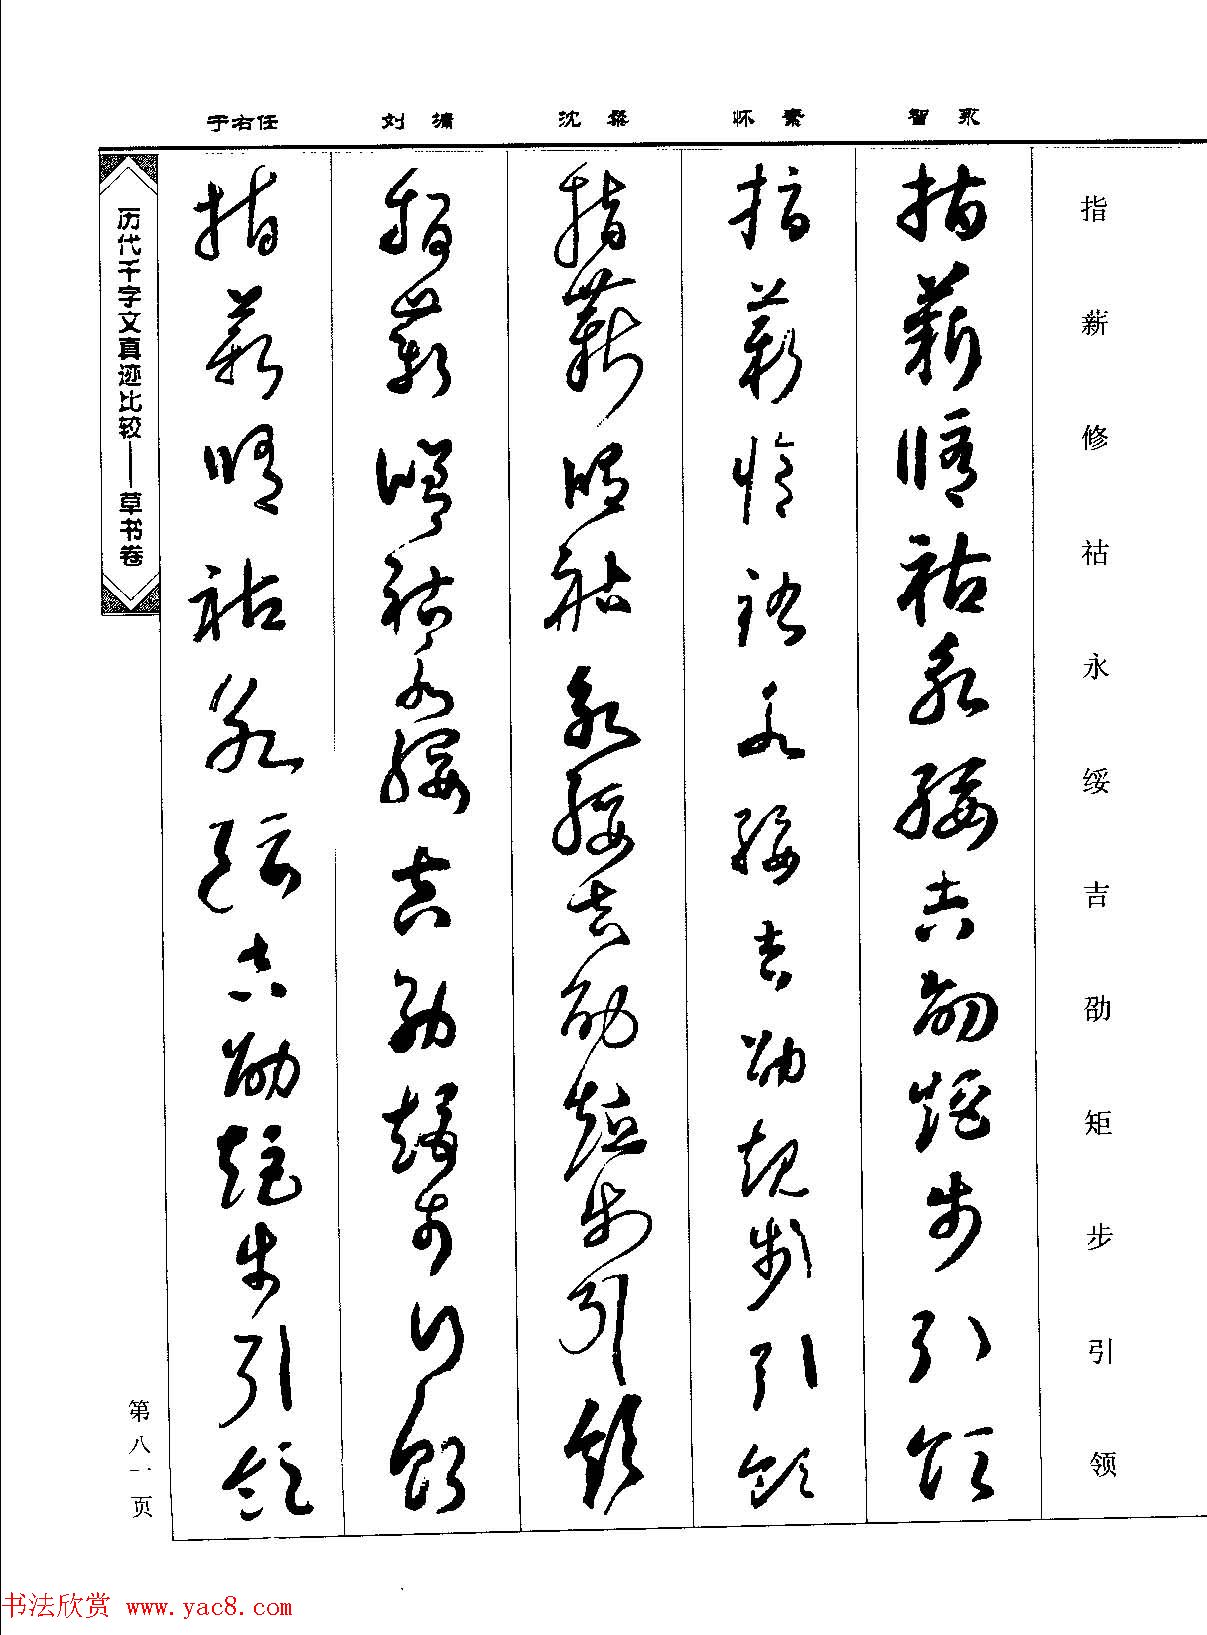 指薪修祜永绥吉劭矩步引领
智永
指薪脩祜永綏吉劭矩步引領
怀素
指薪脩祜永綏吉劭矩步引領
沈粲
指薪脩祜永綏吉劭矩步引領
刘墉
指薪脩祜永綏吉劭矩步引領
于右任
指薪脩祜永綏吉劭矩步引領
历代千字文真迹比较——草书卷
第八一页
书法欣赏 www.yac8.com